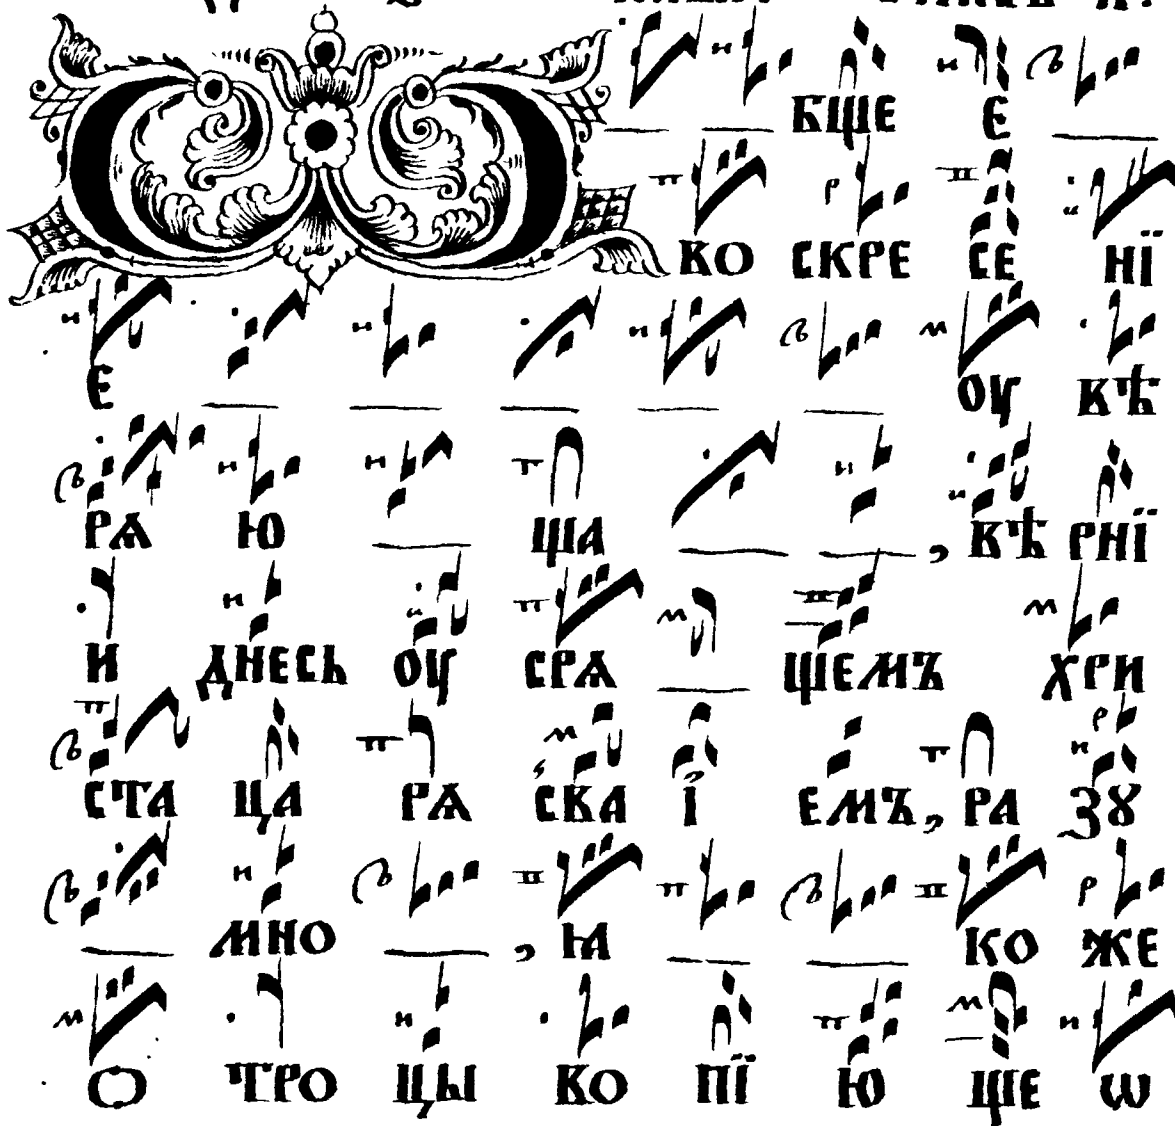 Ѻ бще е
во скре се нї
е оу вѣ
рѧ ю ща , вѣ рнї
и днесь оу срѧ щемъ хри
ста ца рѧ ска ї емъ, ра зꙋ
мно , ꙗ ко же
о тро цы во пї ю ще ѡ